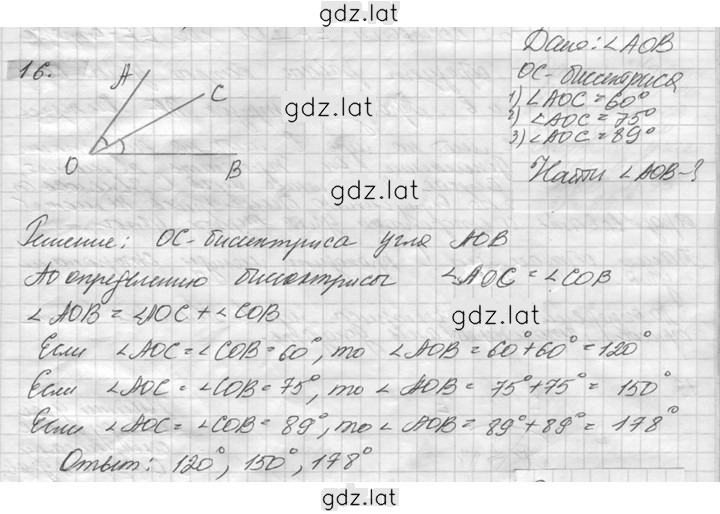 gdz.lat
16.
A
C
O
B
Дано: ∠AOB
OC - биссектриса
1) ∠AOC = 60°
2) ∠AOC = 75°
3) ∠AOC = 89°
Найти ∠AOB - ?
gdz.lat
gdz.lat
Решение: OC - биссектриса угла AOB
По определению биссектрисы ∠AOC = ∠COB
∠AOB = ∠AOC + ∠COB
gdz.lat
Если ∠AOC = ∠COB = 60°, то ∠AOB = 60° + 60° = 120°
Если ∠AOC = ∠COB = 75°, то ∠AOB = 75° + 75° = 150°
Если ∠AOC = ∠COB = 89°, то ∠AOB = 89° + 89° = 178°
Ответ: 120°, 150°, 178°
gdz.lat